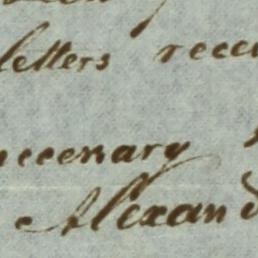 letters recei
necenary
Alexand